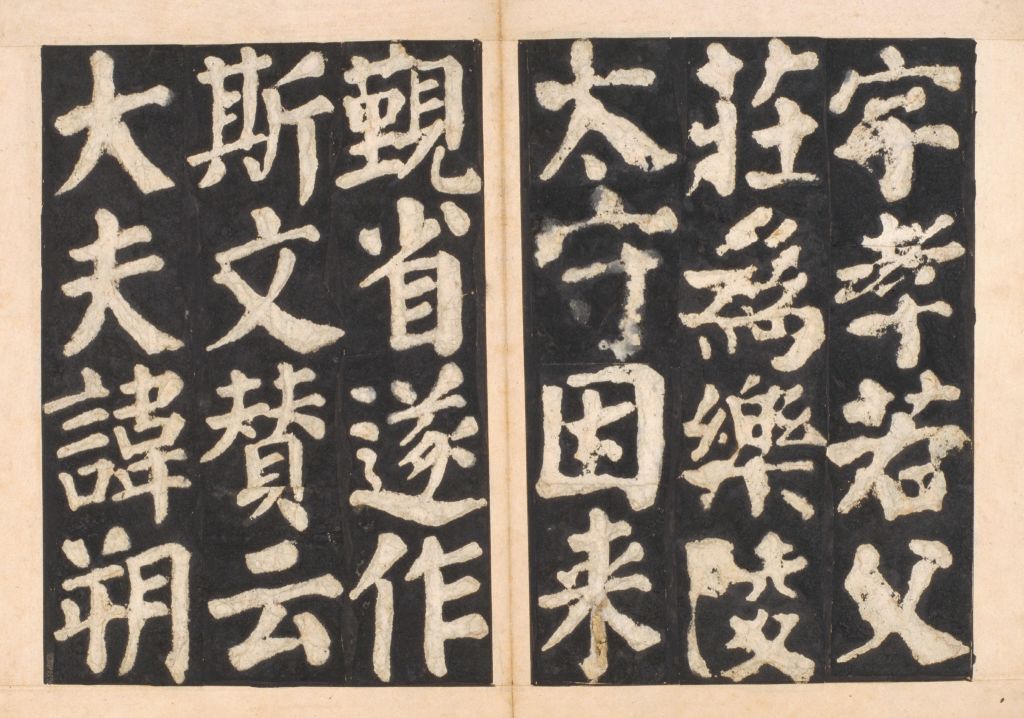 字孝若父
莊爲樂陵
太守因来
覲省遂作
斯文賛云
大夫諱朔